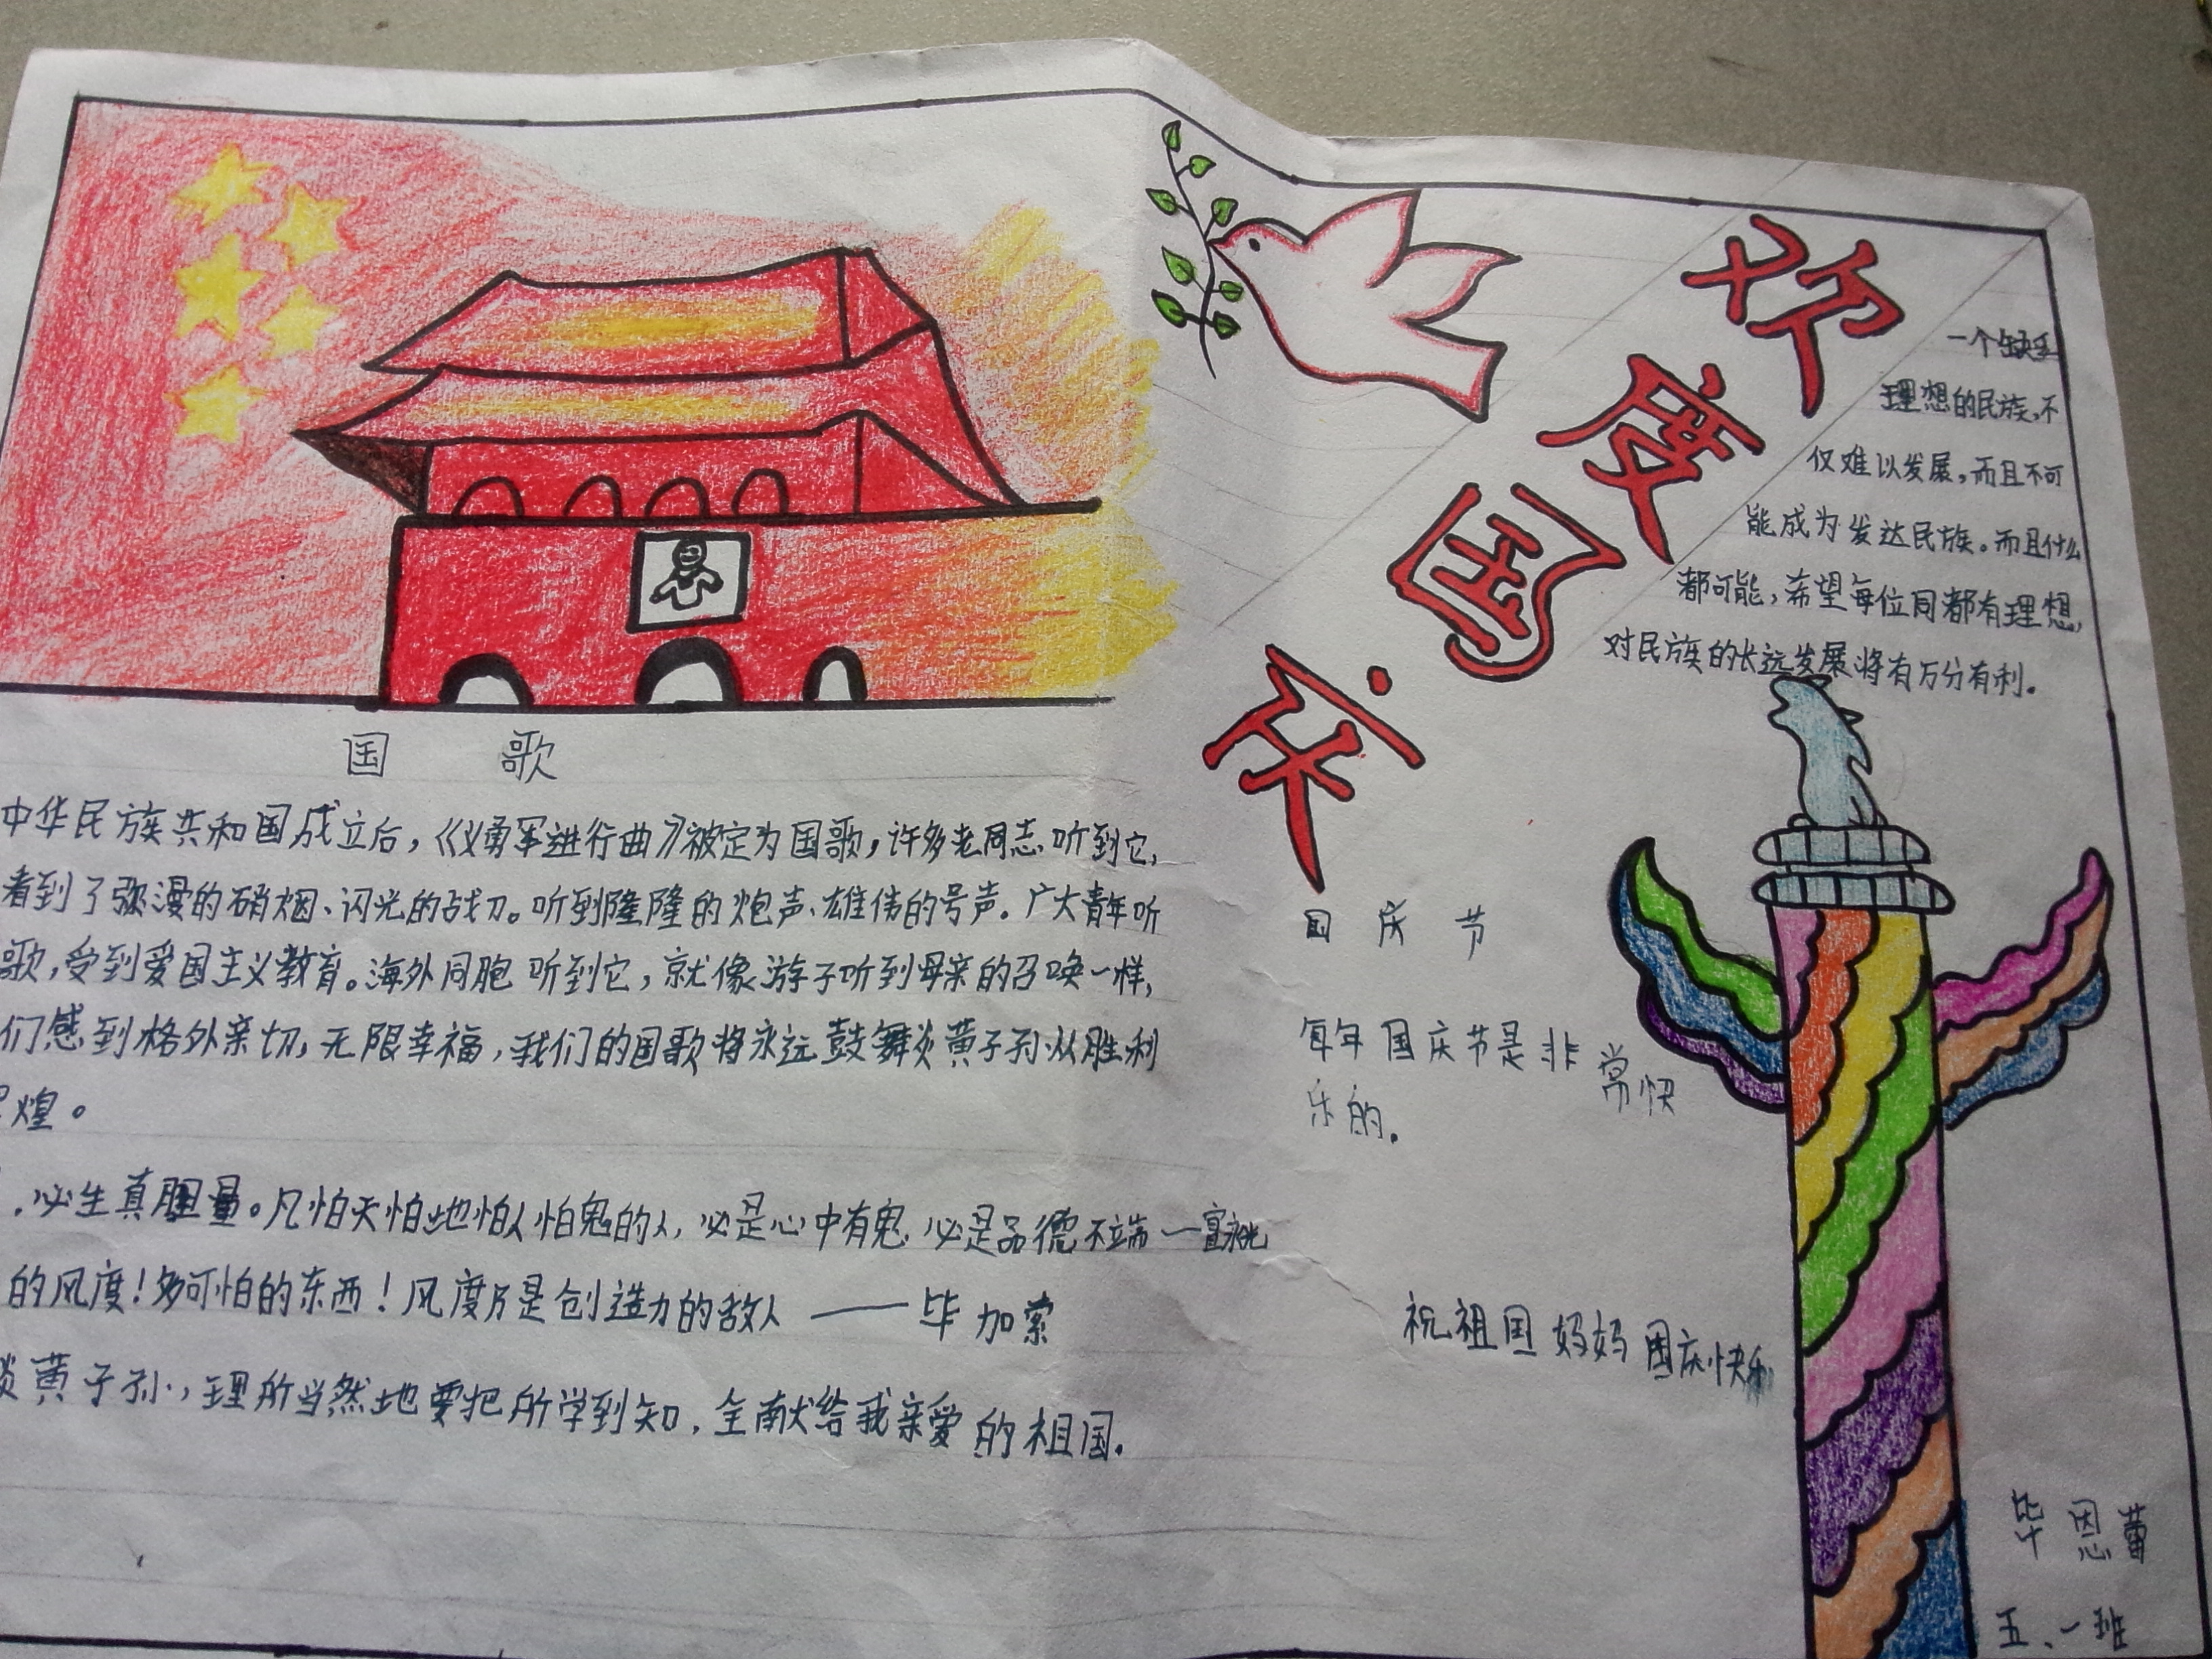 国 歌
中华民族共和国成立后，《义勇军进行曲》被定为国歌，许多老同志听到它，
看到了弥漫的硝烟、闪光的战刀。听到隆隆的炮声、雄伟的号声。广大青年听
歌，受到爱国主义教育。海外同胞听到它，就像游子听到母亲的召唤一样，
们感到格外亲切，无限幸福，我们的国歌将永远鼓舞炎黄子孙从胜利
煌。
，必生真胆量。凡怕天怕地怕人怕鬼的人，必是心中有鬼，必是品德不端一
的风度！多可怕的东西！风度乃是创造力的敌人——毕加索
炎黄子孙，理所当然地要把所学到知，全献给我亲爱的祖国.
欢度国庆
一个缺乏
理想的民族，不
仅难以发展，而且不可
能成为发达民族。而且什么
都可能，希望每位同都有理想，
对民族的长远发展将有万分有利。
国庆节
每年国庆节是非常快
乐的.
祝祖国妈妈国庆快乐
毕恩蕾
五、一班